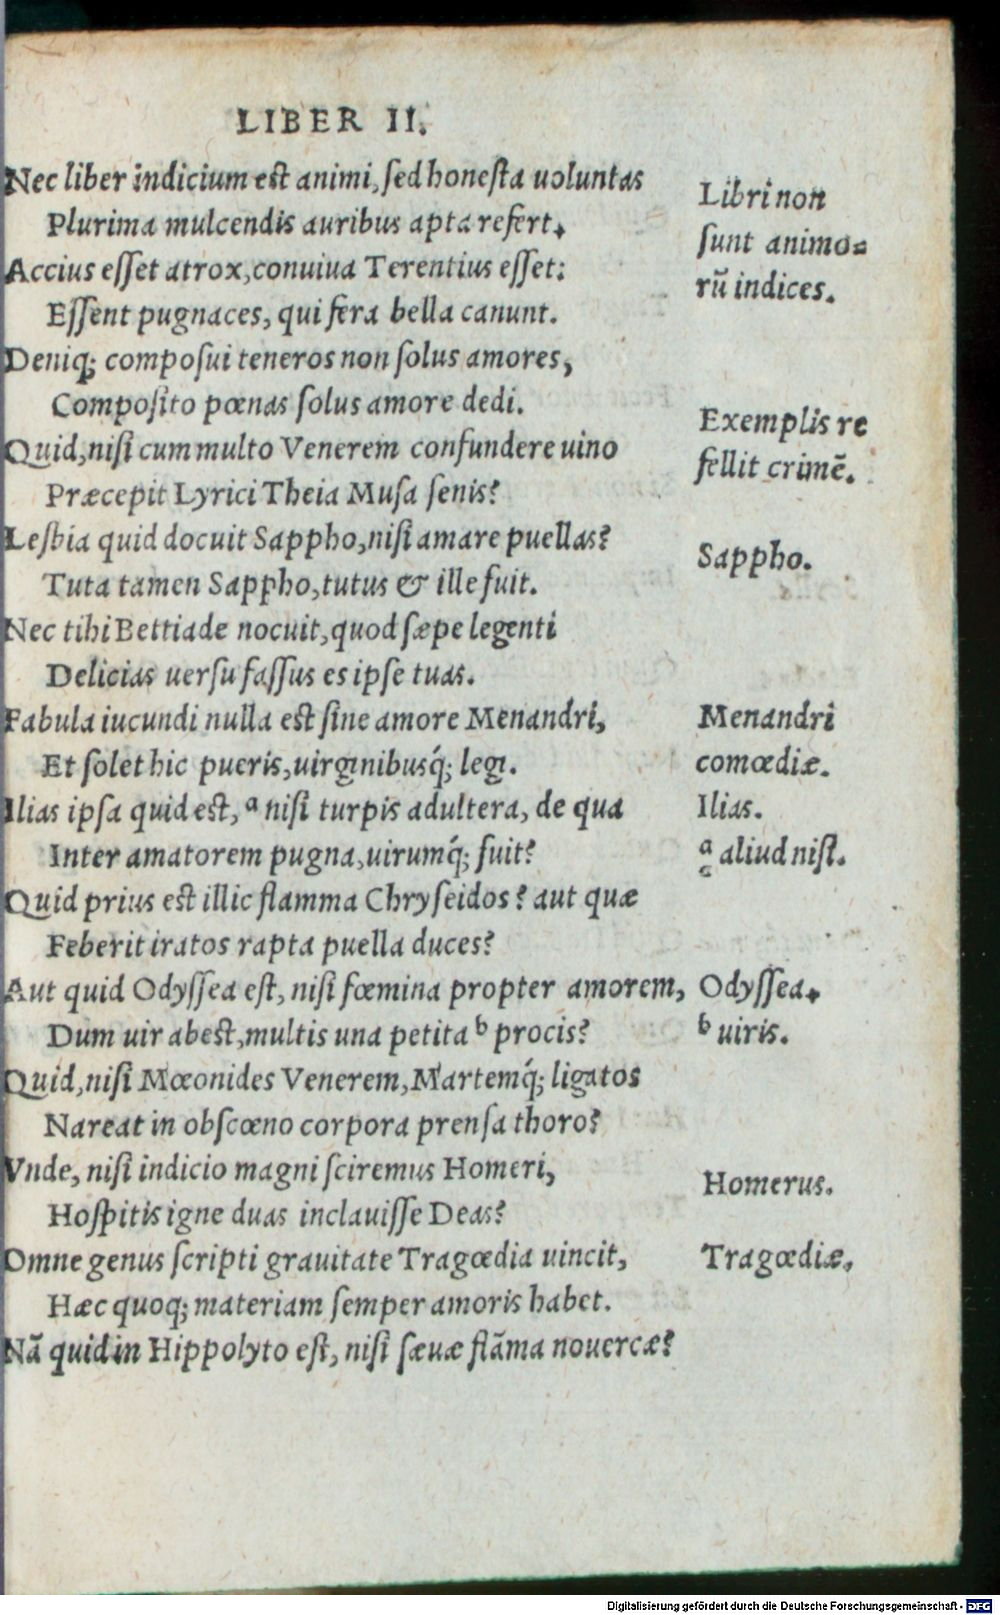 LIBER II.
Nec liber indicium est animi, sed honesta uoluntas
Plurima mulcendis auribus apta refert.
Accius esset atrox, conuiua Terentius esset:
Essent pugnaces, qui fera bella canunt.
Deniq; composui teneros non solus amores,
Composito pœnas solus amore dedi.
Quid, nisi cum multo Venerem confundere uino
Præcepit Lyrici Theia Musa senis?
Lesbia quid docuit Sappho, nisi amare puellas?
Tuta tamen Sappho, tutus & ille fuit.
Nec tibi Bettiade nocuit, quod sæpe legenti
Delicias uersu fassus es ipse tuas.
Fabula iucundi nulla est sine amore Menandri,
Et solet hic pueris, uirginibusq́; legi.
Ilias ipsa quid est, a nisi turpis adultera, de qua
Inter amatorem pugna, uirumq́; fuit?
Quid prius est illic flamma Chryseidos? aut quæ
Feberit iratos rapta puella duces?
Aut quid Odyssea est, nisi fœmina propter amorem,
Dum uir abest, multis una petita b procis?
Quid, nisi Mœonides Venerem, Martemq́; ligatos
Nareat in obscœno corpora prensa thoro?
Vnde, nisi indicio magni sciremus Homeri,
Hospitis igne duas inclauisse Deas?
Omne genus scripti grauitate Tragœdia uincit,
Hæc quoq; materiam semper amoris habet.
Nã quid in Hippolyto est, nisi sæuæ flãma nouercæ?
Libri non
sunt animo=
rũ indices.
Exemplis re
fellit crimẽ.
Sappho.
Menandri
comœdiæ.
Ilias.
a aliud nisi.
Odyssea.
b uiris.
Homerus.
Tragœdiæ.
Digitalisierung gefördert durch die Deutsche Forschungsgemeinschaft - DFG